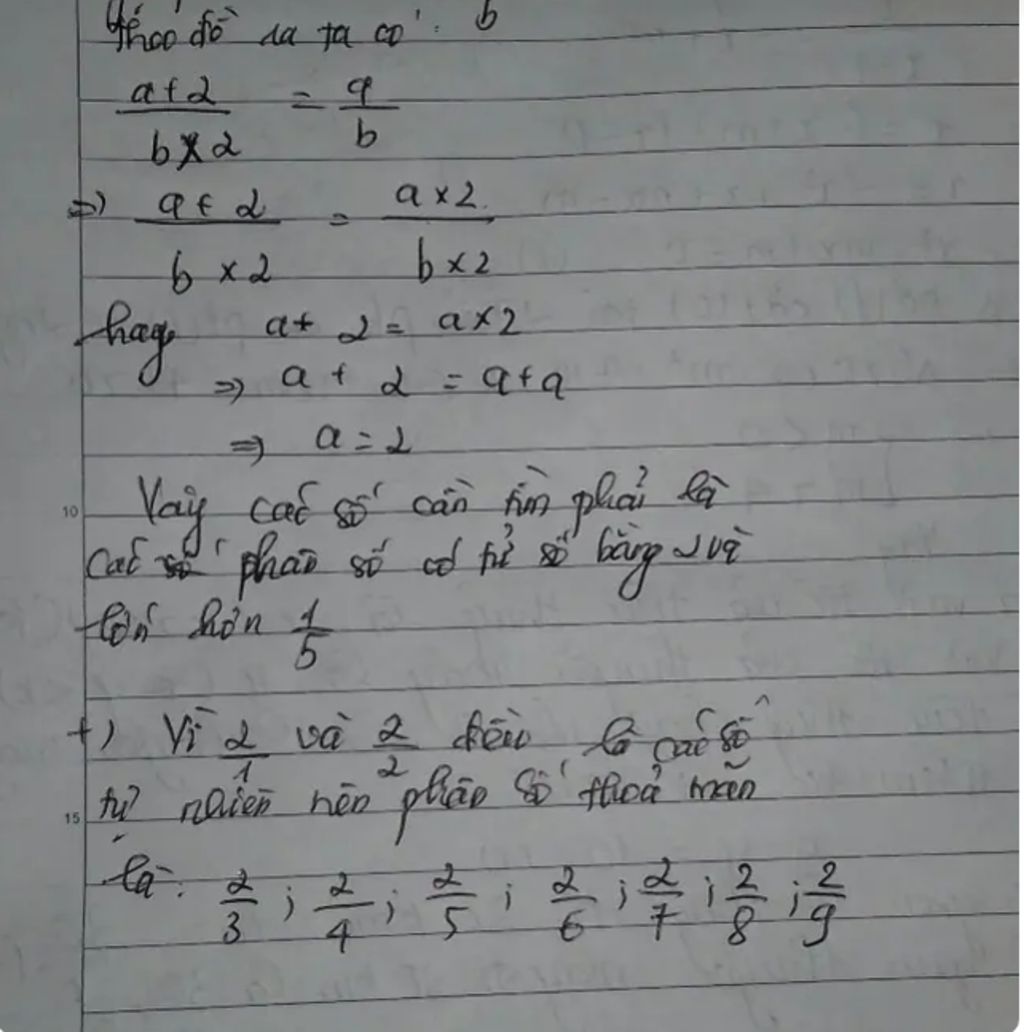 theo đề ra ta có : b
a+2 / b×2 = a / b
=> a+2 / b×2 = a×2 / b×2
hay a+ 2 = a×2
=> a + 2 = a+a
=> a = 2
10
Vậy các số cần tìm phải là
các số phân số có tử số bằng 2 và
lớn hơn 1/5
+) Vì 2/1 và 2/2 đều là các số
tự nhiên nên phân số thoả mãn
15
là: 2/3 ; 2/4 ; 2/5 ; 2/6 ; 2/7 ; 2/8 ; 2/9